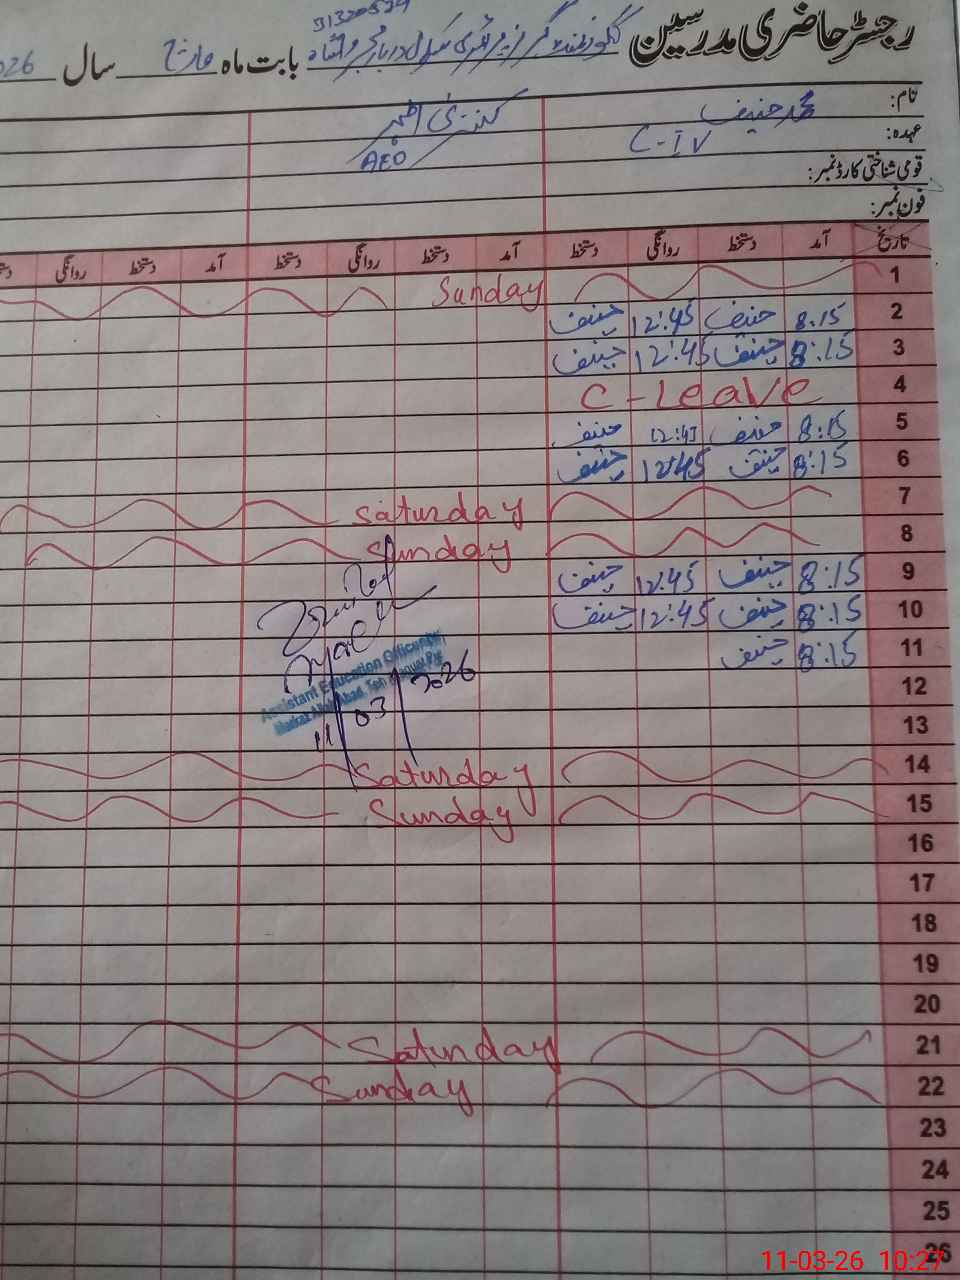 31320534
رجسٹر حاضری مدرسین گورنمنٹ گرلز پرائمری سکول دربار بابت ماہ مارچ سال 026
نام: محمد حنیف
عہدہ: C-IV AEO
قومی شناختی کارڈ نمبر:
فون نمبر:
تاریخ آمد دستخط روانگی دستخط آمد دستخط روانگی دستخط آمد دستخط روانگی
1 Sunday
2 8:15 حنیف 12:45 حنیف
3 8:15 حنیف 12:45 حنیف
4 C-Leave
5 8:15 حنیف 12:45 حنیف
6 8:15 حنیف 12:45 حنیف
7 Saturday
8 Sunday
9 8:15 حنیف 12:45 حنیف
10 8:15 حنیف 12:45 حنیف
11 8:15 حنیف
Assistant Education Officer
11/03/2026
12
13
14 Saturday
15 Sunday
16
17
18
19
20
21 Saturday
22 Sunday
23
24
25
26
11-03-26 10:27